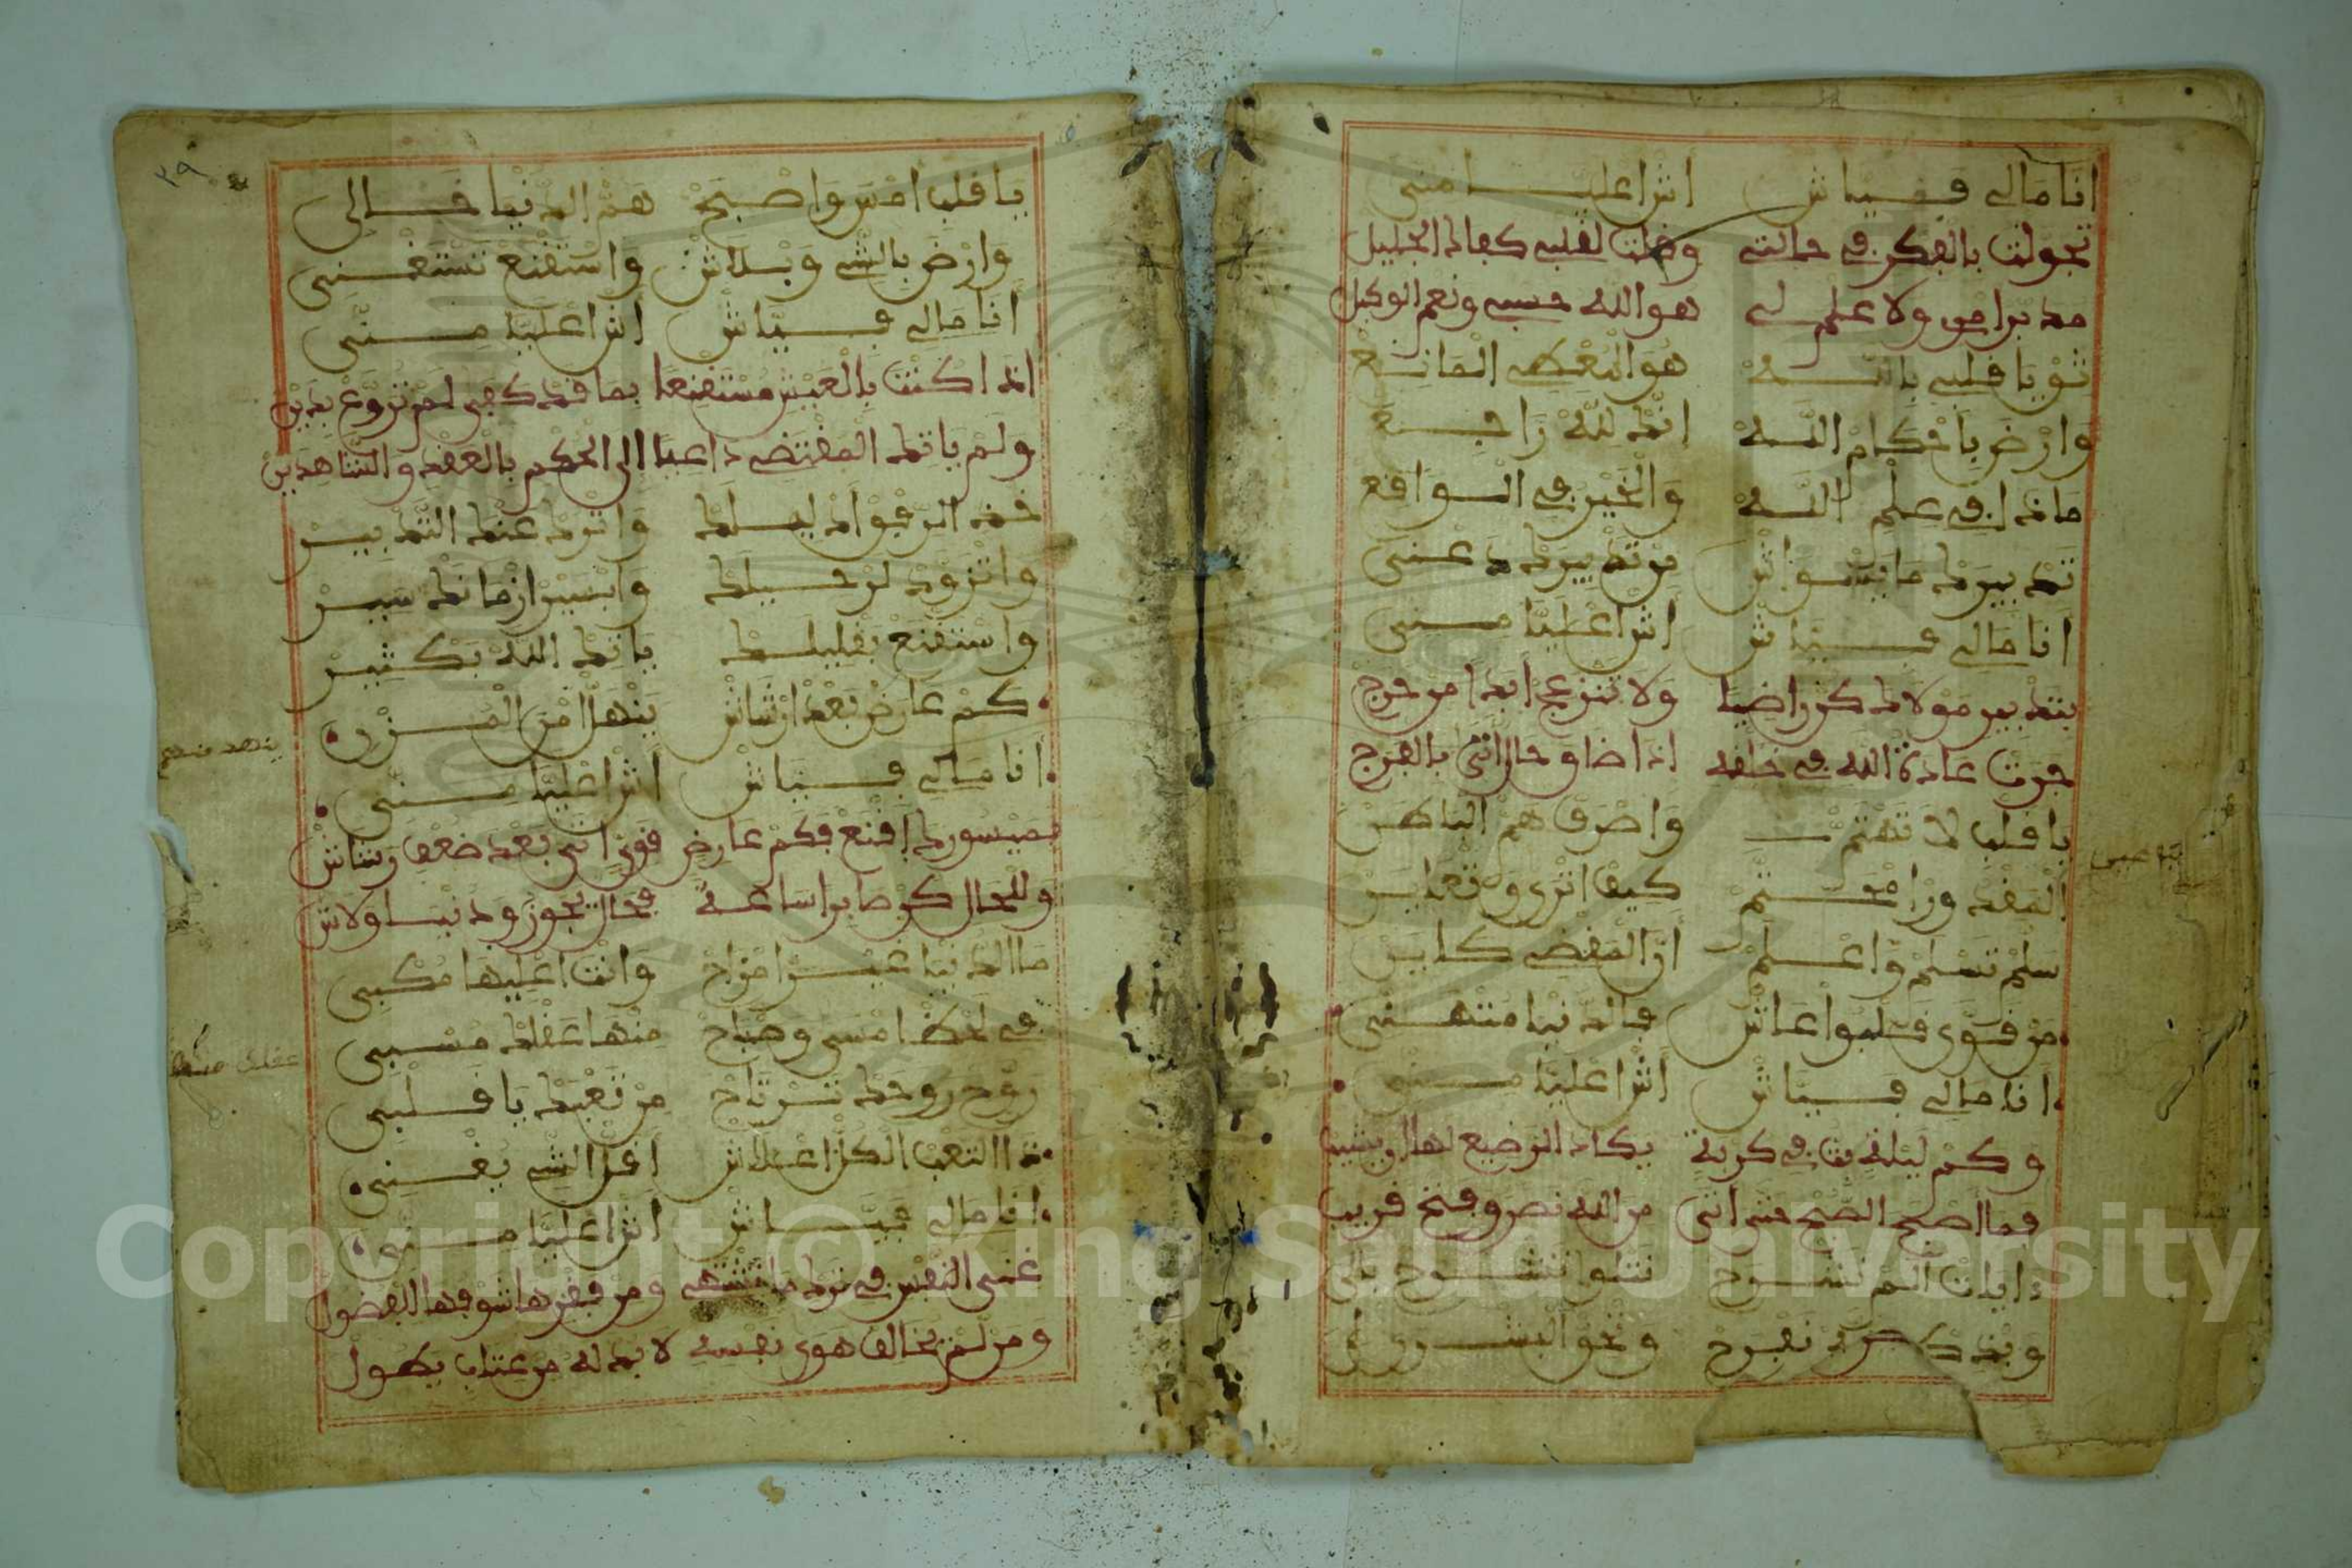 انا مالي فياش اش اعليا مني
تحولت بالفكر في حالتي وقلت لقلبي كفاك الجليل
مدبر امري ولا علم لي هو الله حسبي ونعم الوكيل
ثق يا قلبي بالله هو المعطي المانع
وارض باحكام الله انك لله راجع
ماذا في علم الله والخير في الواقع
تدبيرك ما يسواش من تدبيرك دعني
انا مالي فياش اش اعليا مني
بتدبير مولاك كن راضيا ولا تنزعج ابدا من حرج
جرت عادة الله في خلقه اذا ضاق حال اتى بالفرج
يا قلب لا تهتم واصرف هم الباهس
المقدور امحتم كيف اترى وتعايس
سلم تسلم واعلم ان المقضي كاين
من قوى قلبوا عاش فالدنيا متهني
انا مالي فياش اش اعليا مني
وكم ليلة بت في كربة يكاد الرضيع لها ان يشيب
فما اصبح الصبح حتى اتى من الله نصر وفتح قريب
ايات الم نشرح تتلو تشرح
وبذكر نفرح ونحو البشر
يا قلب امس واصبح هم الدنيا خالي
وارض بالشي وبلاش واستقنع تستغني
انا مالي فياش اش اعليا مني
اذا كنت بالعيش مستقنعا بما قد كفى لم تروع بدين
ولم ياتك المقتضي داعيا الى الحكم بالعقد والشاهدين
خذ الرفق اد ليلك واترك عنك التدبير
واتزود لرحيلك وابسير ازمانك سير
واستقنع بقليلك ياتك الله بكثير
كم عارض بعد ارشاش ينهلا من المزن
انا مالي فياش اش اعليا مني
ميسورك اقنع فكم عارض قوي اتى بعد ضعف رشاش
وللحال كن صابرا ساعة فحال يجوز ودنيا ولاش
ما الدنيا غير امزاح وانت اعليها مكبي
في لحظ امسى وصباح منها عقلك مسبي
روح روحك ترتاح من تعبك يا قلبي
ذا التعب الكل اعلاش اقل الشي يغني
انا مالي فياش اش اعليا مني
غنى النفس في ترك ما تشتهي ومن فقرها شوقها للفضول
ومن لم يخالف هوى نفسه لا بد له من عتاب يطول
٣٩